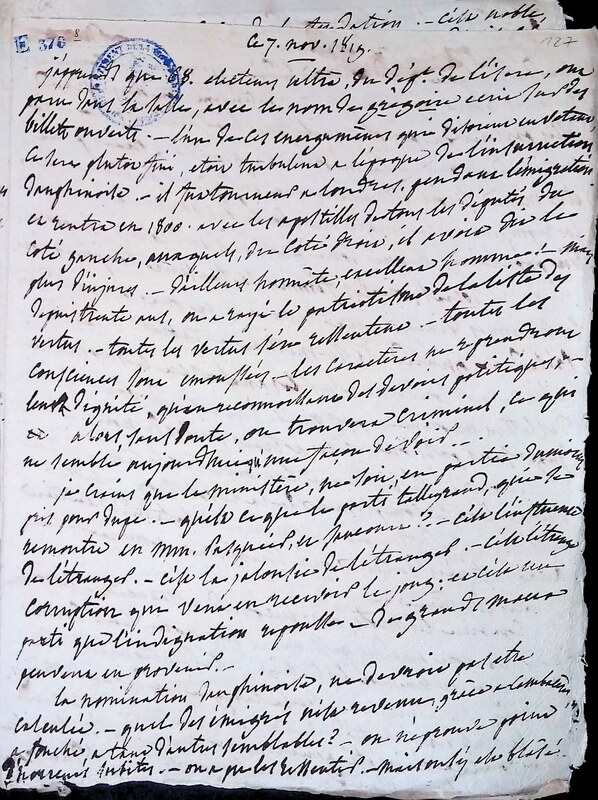 E 376 8
ce 7. nov. 1819.
127
j'apprends que 68. electeurs ultra, du dépt. de l'isere, ont
paru dans la salle, avec le nom de grégoire ecrit sur des
billets ouverts. – l'un de ces energumènes qui disoient en votant,
ce sera plutot fini, etoit turbulent a l'époque de l'insurrection
dauphinoise. – il fut a londres, pendant l'émigration
et rentra en 1800. avec les apostilles de tous les députés, du
coté gauche, auxquels, du coté droit, il avoit dit le
plus d'injures. – d'ailleurs honnête, excellent homme! – mais
depuis trente ans, on a rayé le patriotisme de la liste des
vertus. – toutes les vertus s'en ressentent – toutes les
consciences sont emoussées – les caractères ne reprendront
leur dignité, qu'en reconnoissant des devoirs politiques. –
alors, sans doute, on trouvera criminel, ce qui
ne semble aujourd'hui qu'une façon de voir. –
je crains que le ministère, ne soit, en partie
pris pour dupe. – qu'est ce que le parti tallegrand, qui se
remontre en mm. Pasquier, et jaucourt? – c'est l'influence
de l'étranger. – c'est la jalousie de l'étranger. – c'est l'étrange
corruption qui vient en recevoir le joug: et c'est un
parti que l'indignation repousse – De grands maux
peuvent en provenir. –
la nomination dauphinoise, ne devroit pas etre
calculée. – quel des émigrés n'est revenu, grâce a
a fouché, a tant d'autres semblables? – on n'éprouve point
d'horreurs subites. – on a pu les ressentir. –